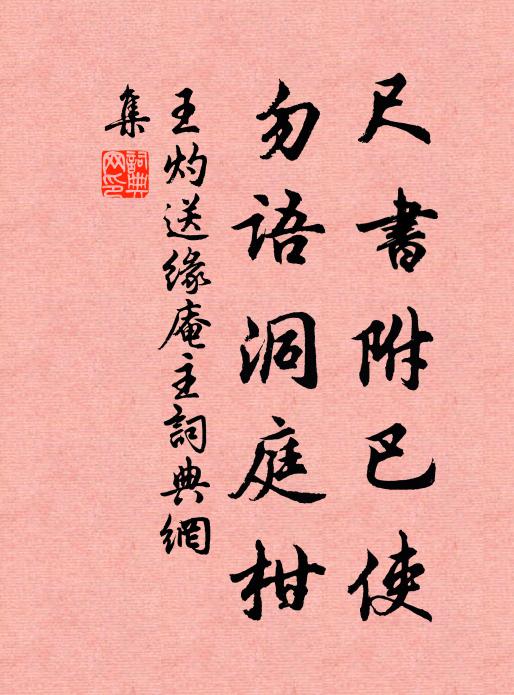 尺書附巴使
勿語洞庭柑
王灼送緣庵主詞典網
集
詞典
網印